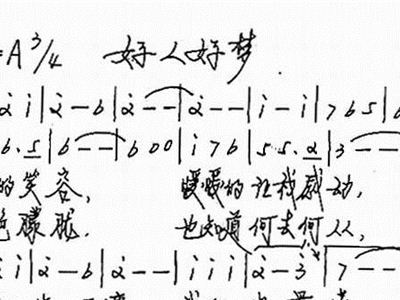 =A 3/4 好人好梦
2̇ i̇ | 2̇ - 6 | 2̇ - - | 2̇ - - | i̇ - i̇ | 7 6 5 | 6
6. 5 | 6 - - | 6 0 0 | i̇ 7 6 | 5 5. 2 | 3 - -
的笑容, 暖暖的让我感动,
朦胧. 也知道何去何从,
i̇ | 2̇ - 6 | 2̇ - - | i̇ i̇ i̇ | 2̇ - 3̇ | 7 - -